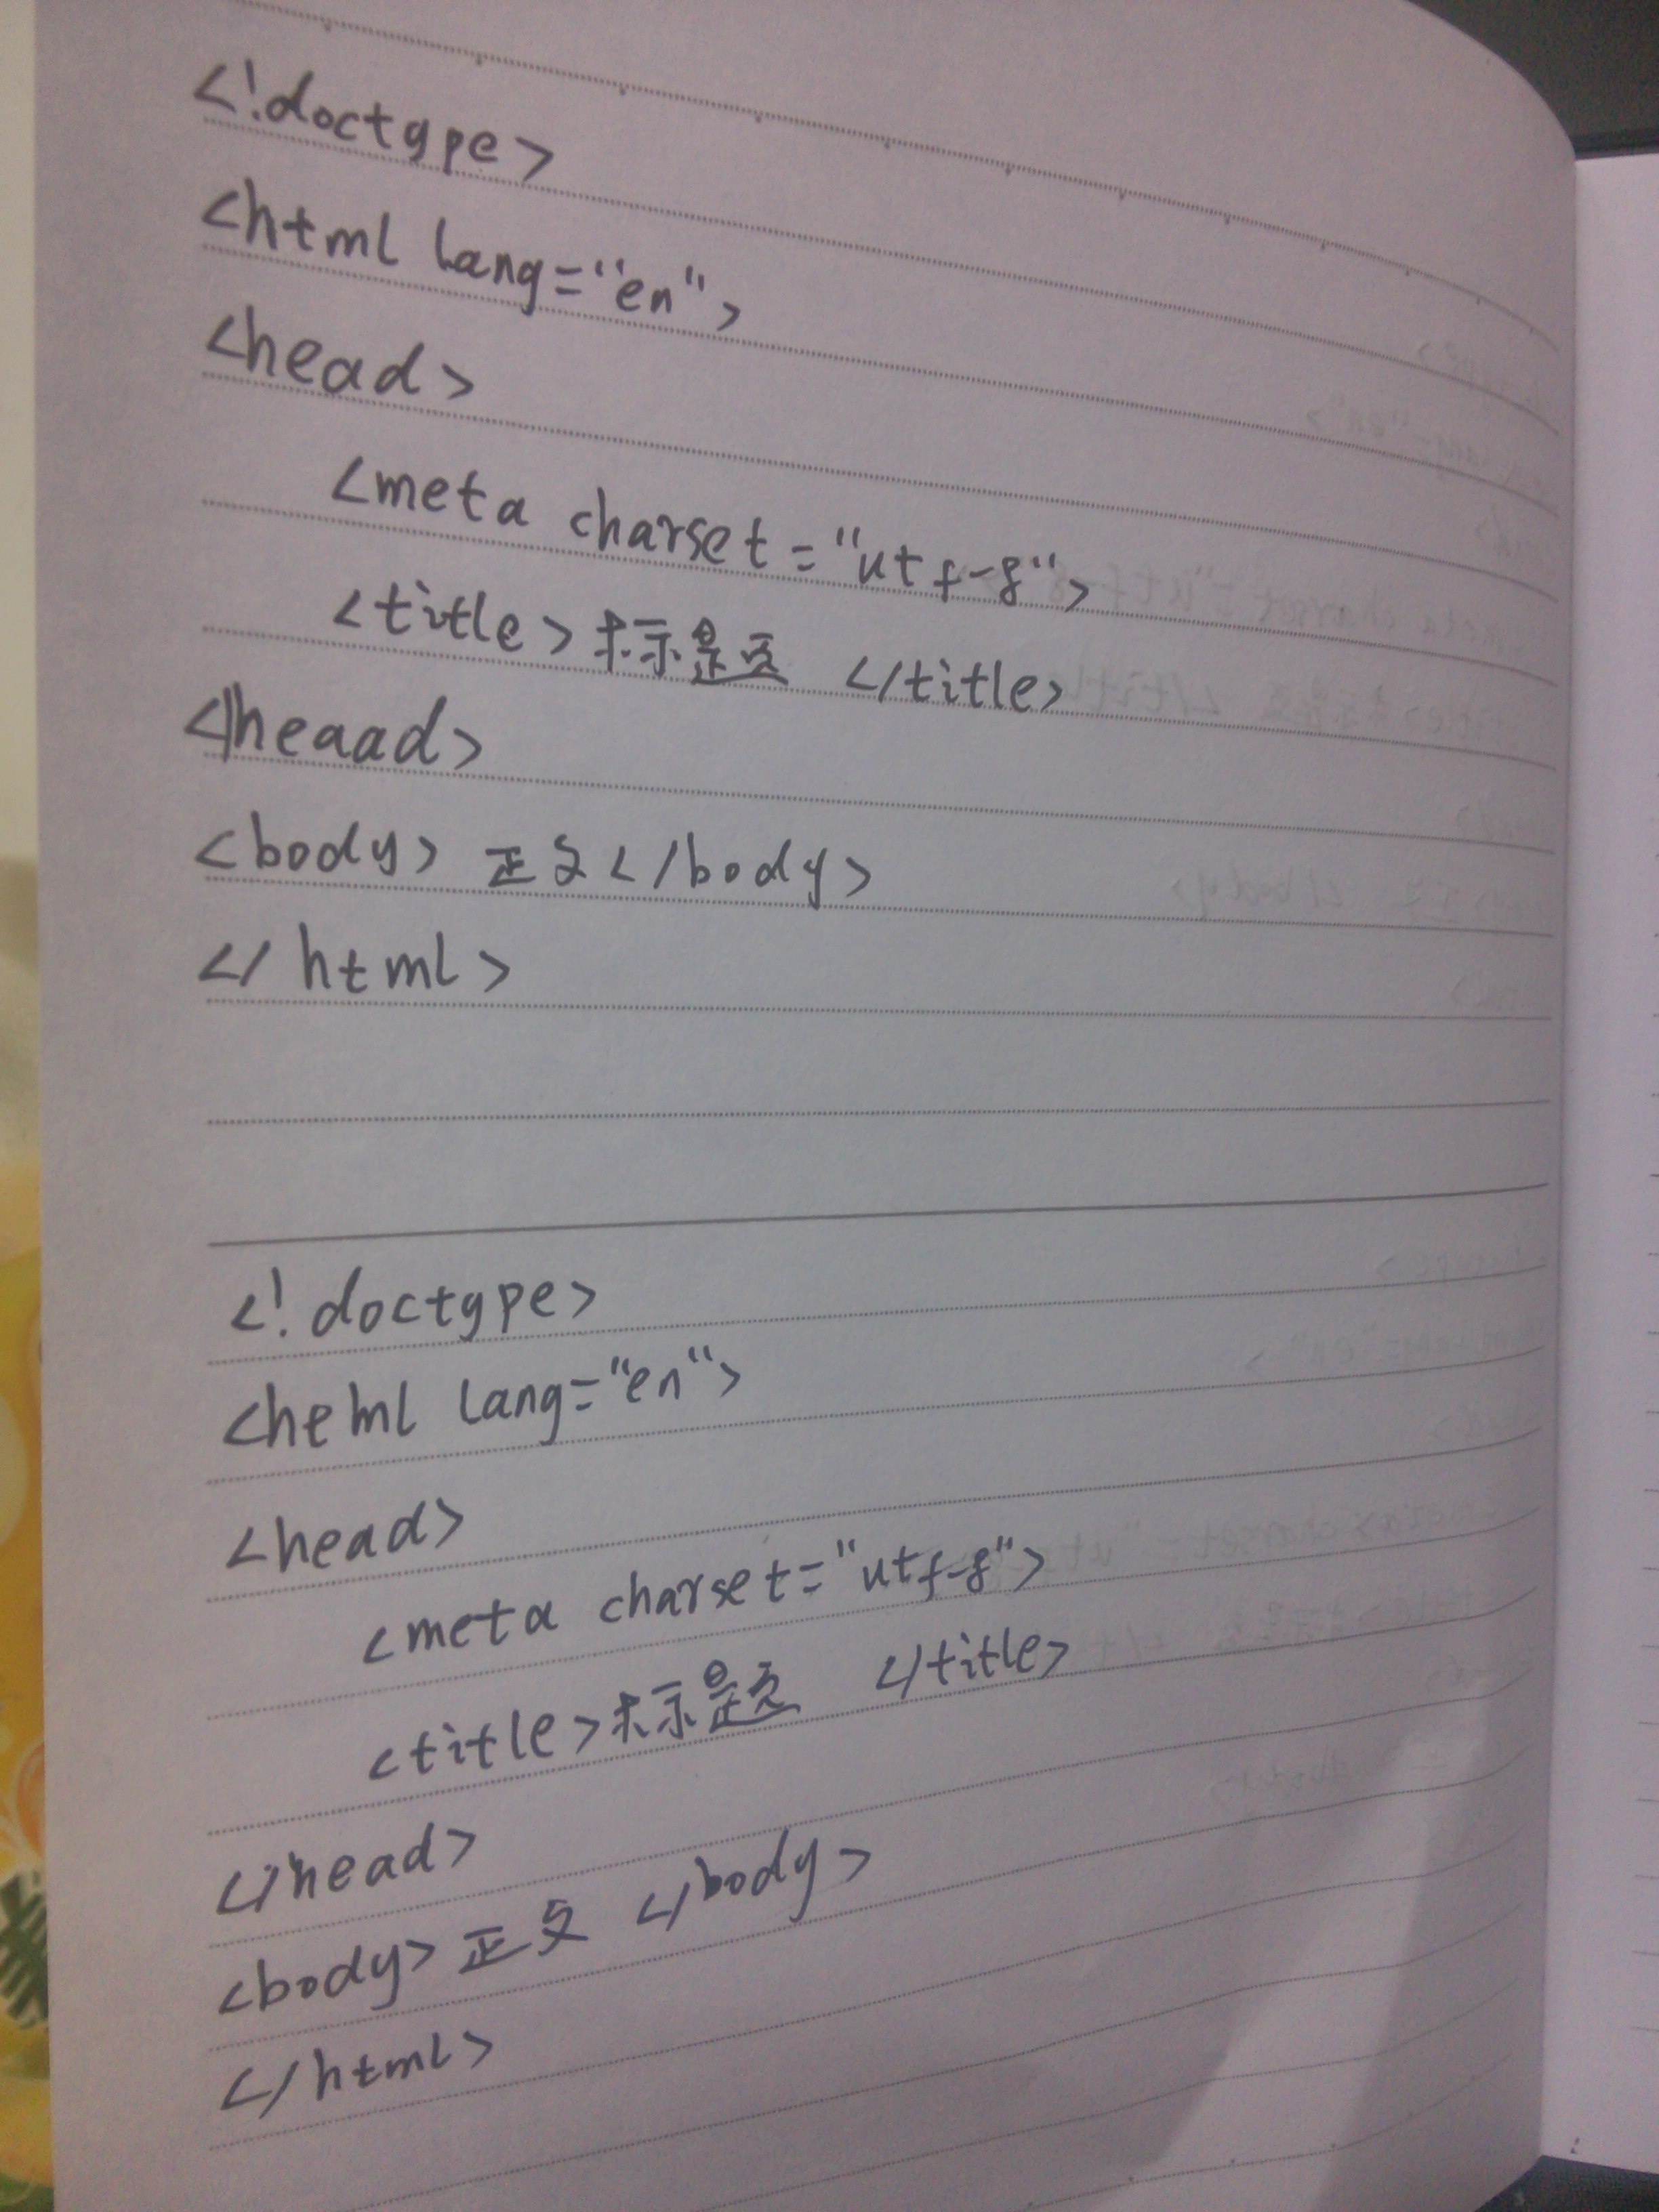 <!doctype>
<html lang="en">
<head>
<meta charset="utf-8">
<title>标题 </title>
</heaad>
<body> 正文</body>
</ html>
<!doctype>
<heml lang="en">
<head>
<meta charset="utf-8">
<title>标题 </title>
</head>
<body>正文 </body>
</html>